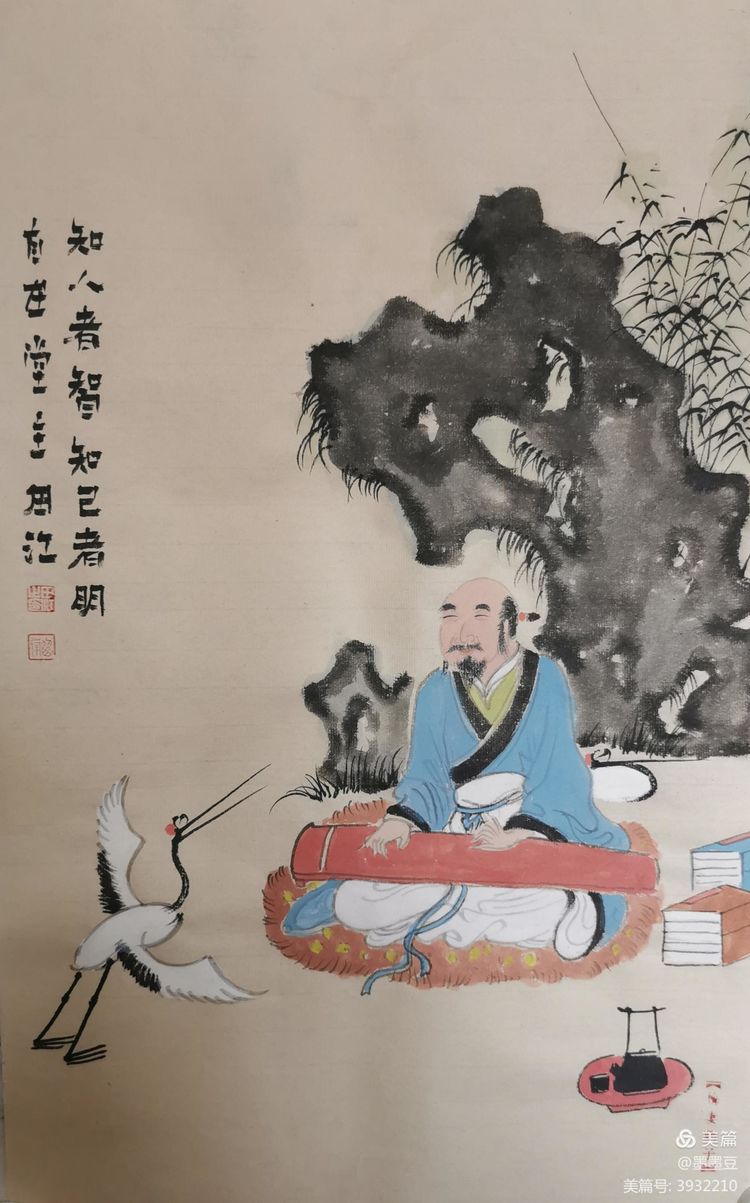 知人者智知己者明
在堂主周江
美篇
@墨墨豆
美篇号: 3932210